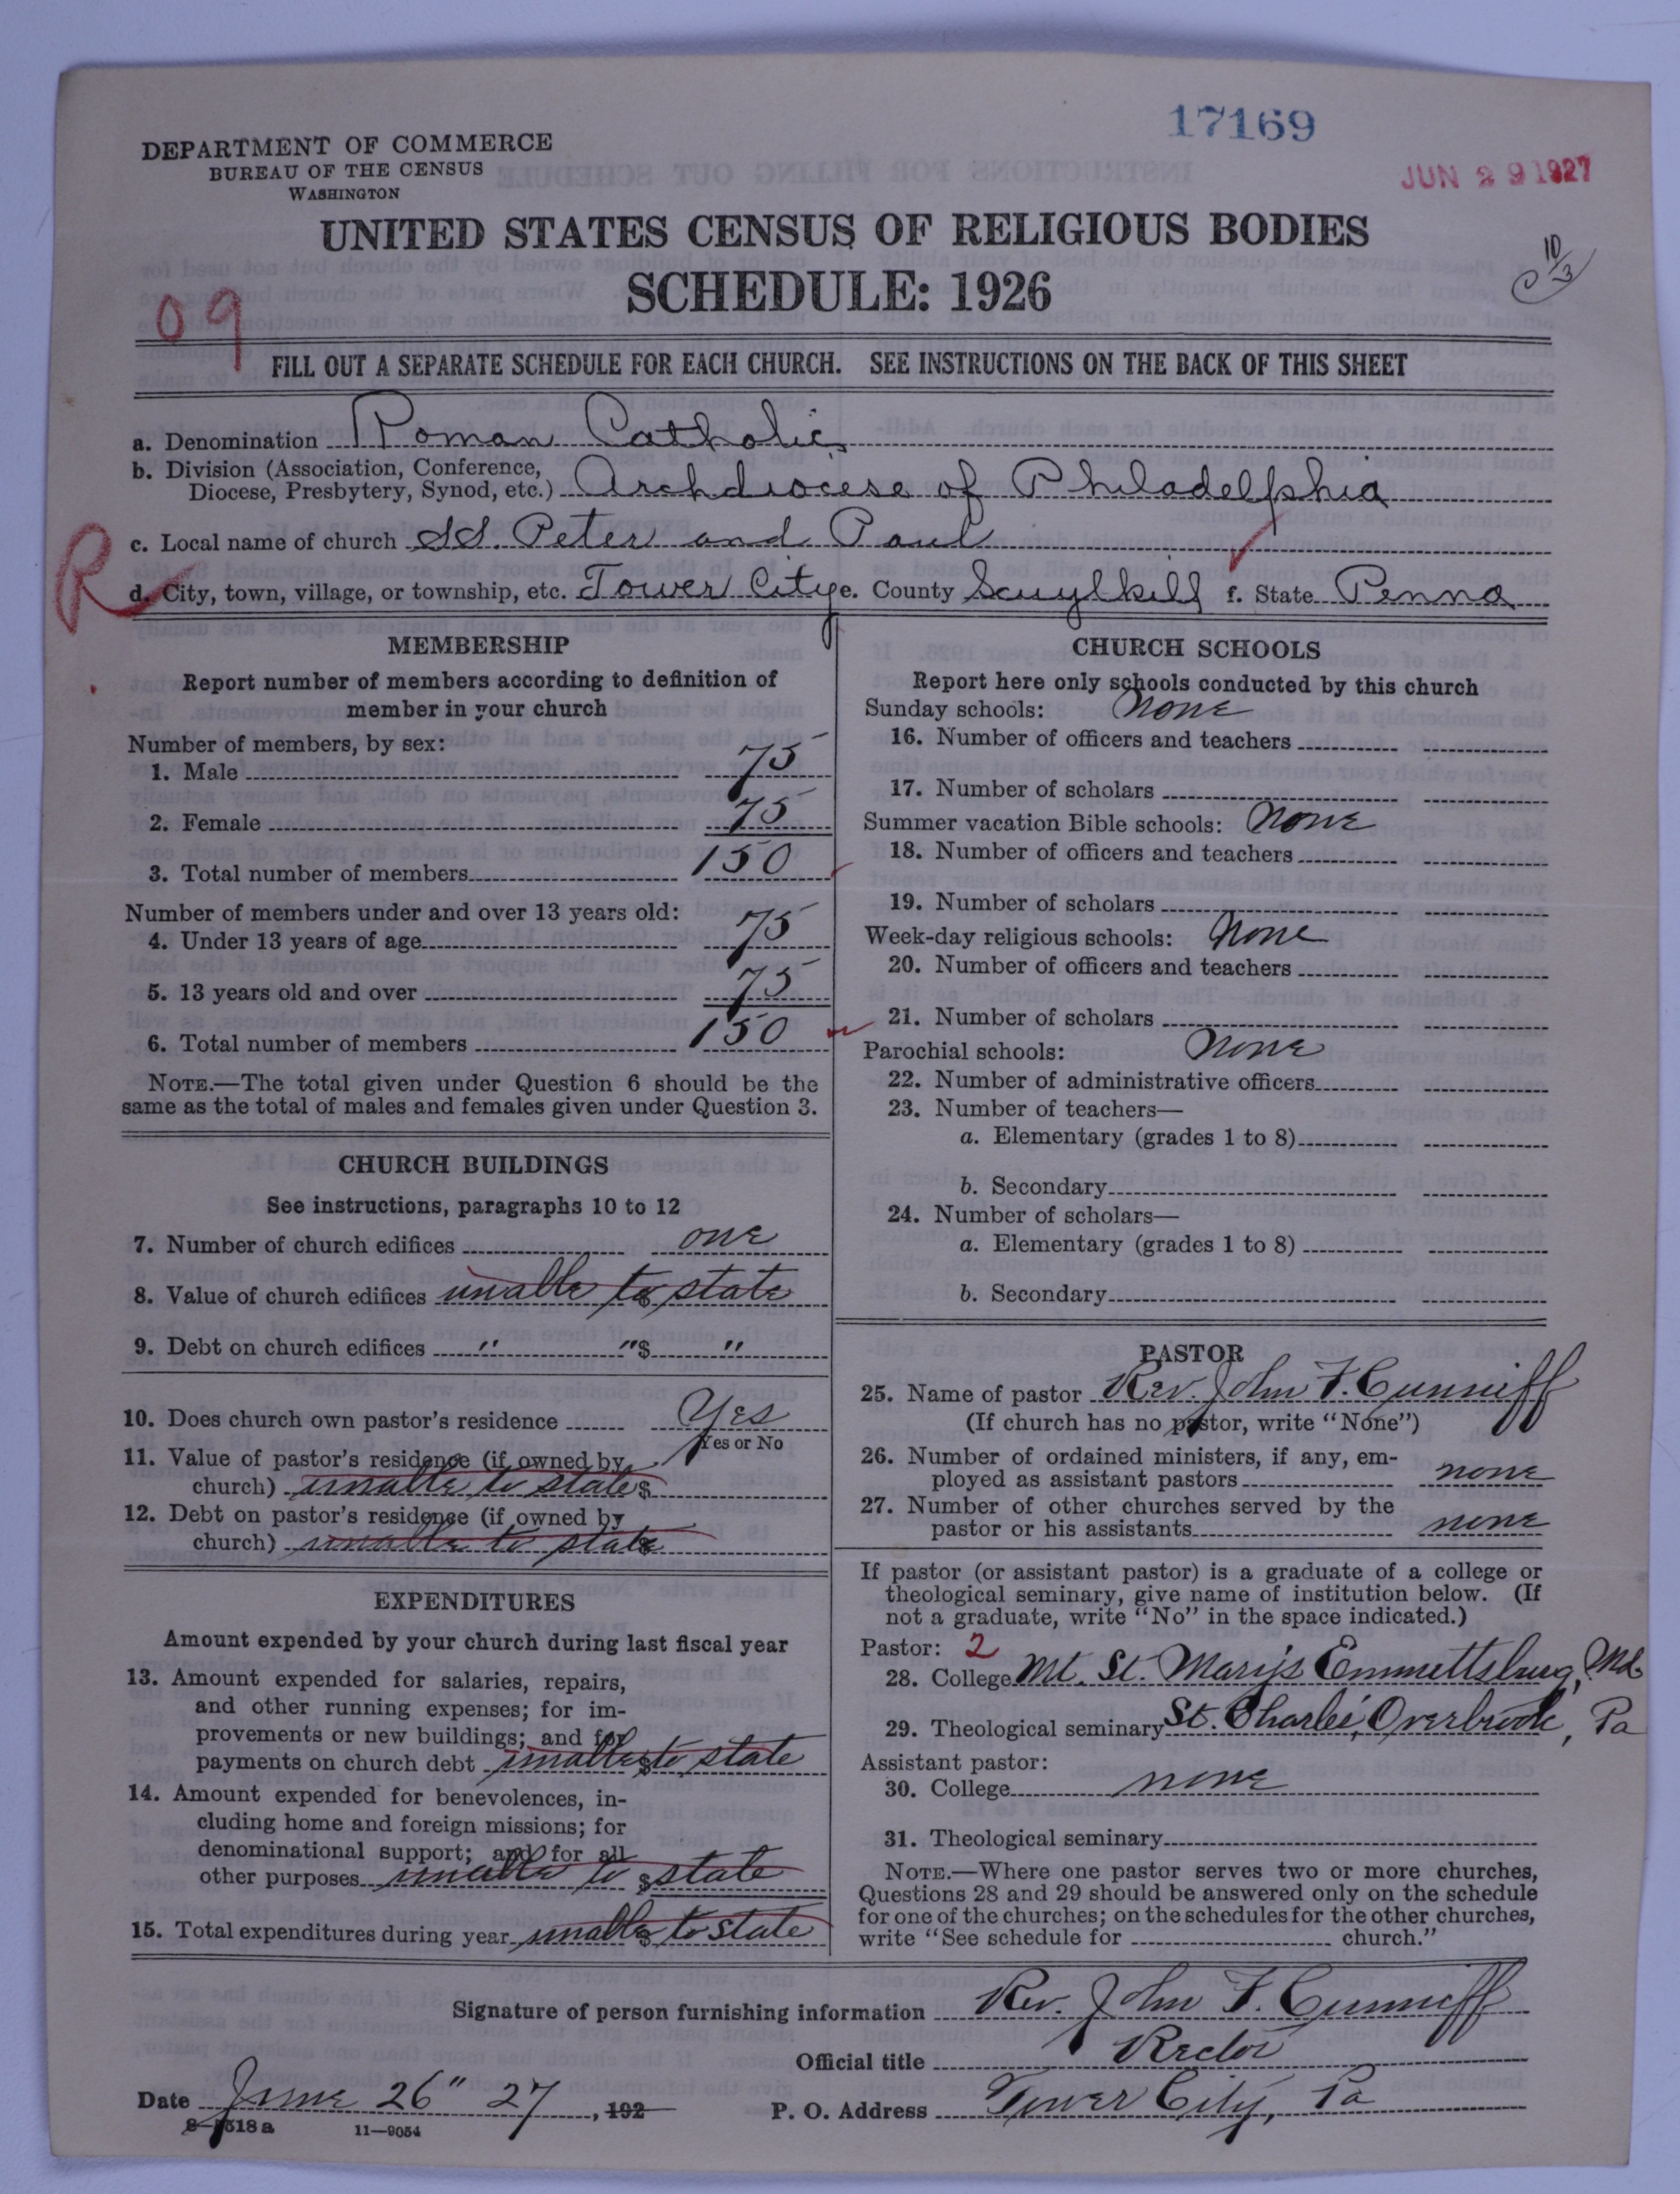 17169
DEPARTMENT OF COMMERCE
BUREAU OF THE CENSUS
WASHINGTON
JUN 29 1927
UNITED STATES CENSUS OF RELIGIOUS BODIES
SCHEDULE: 1926
10/3
09
FILL OUT A SEPARATE SCHEDULE FOR EACH CHURCH. SEE INSTRUCTIONS ON THE BACK OF THIS SHEET
a. Denomination Roman Catholic
b. Division (Association, Conference,
Diocese, Presbytery, Synod, etc.) Archdiocese of Philadelphia
c. Local name of church SS. Peter and Paul
R
d. City, town, village, or township, etc. Tower City e. County Scuylkill f. State Penna
MEMBERSHIP
Report number of members according to definition of
member in your church
Number of members, by sex:
1. Male 75
2. Female 75
3. Total number of members 150
Number of members under and over 13 years old:
4. Under 13 years of age 75
5. 13 years old and over 75
6. Total number of members 150
NOTE.—The total given under Question 6 should be the
same as the total of males and females given under Question 3.
CHURCH BUILDINGS
See instructions, paragraphs 10 to 12
7. Number of church edifices one
8. Value of church edifices unable to $ state
9. Debt on church edifices " " $ "
10. Does church own pastor's residence Yes
Yes or No
11. Value of pastor's residence (if owned by
church) unable to state $
12. Debt on pastor's residence (if owned by
church) unable to state $
EXPENDITURES
Amount expended by your church during last fiscal year
13. Amount expended for salaries, repairs,
and other running expenses; for im-
provements or new buildings; and for
payments on church debt unable $ to state
14. Amount expended for benevolences, in-
cluding home and foreign missions; for
denominational support; and for all
other purposes unable to $ state
15. Total expenditures during year unable $ to state
CHURCH SCHOOLS
Report here only schools conducted by this church
Sunday schools: none
16. Number of officers and teachers
17. Number of scholars
Summer vacation Bible schools: none
18. Number of officers and teachers
19. Number of scholars
Week-day religious schools: none
20. Number of officers and teachers
21. Number of scholars
Parochial schools: none
22. Number of administrative officers
23. Number of teachers—
a. Elementary (grades 1 to 8)
b. Secondary
24. Number of scholars—
a. Elementary (grades 1 to 8)
b. Secondary
PASTOR
25. Name of pastor Rev. John F. Cunniff
(If church has no pastor, write "None")
26. Number of ordained ministers, if any, em-
ployed as assistant pastors none
27. Number of other churches served by the
pastor or his assistants none
If pastor (or assistant pastor) is a graduate of a college or
theological seminary, give name of institution below. (If
not a graduate, write "No" in the space indicated.)
Pastor: 2
28. College Mt. St. Mary's Emmettsburg, Md
29. Theological seminary St. Charles, Overbrook, Pa
Assistant pastor:
30. College none
31. Theological seminary
NOTE.—Where one pastor serves two or more churches,
Questions 28 and 29 should be answered only on the schedule
for one of the churches; on the schedules for the other churches,
write "See schedule for church."
Signature of person furnishing information Rev. John F. Cunniff
Official title Rector
Date June 26" 27, 192
P. O. Address Tower City, Pa
8-5518a 11—9054